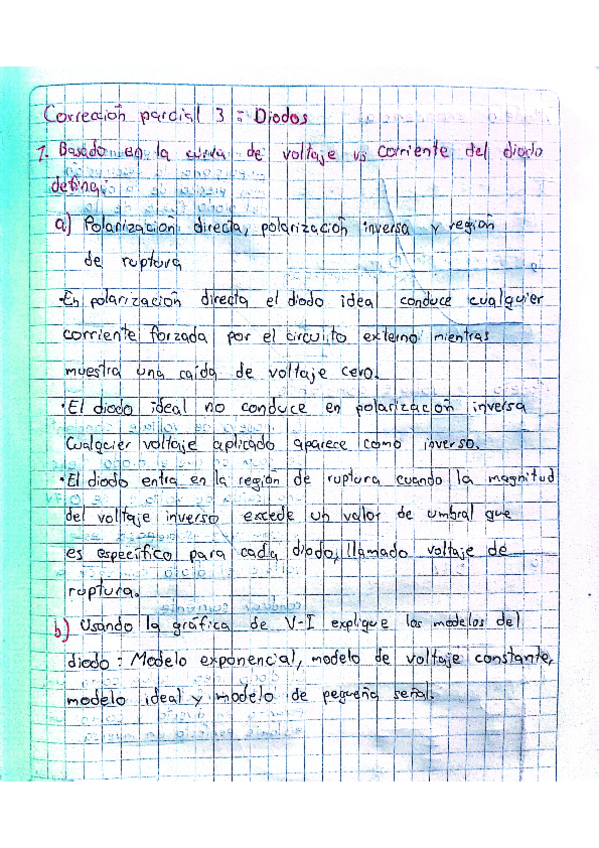 Corrección parcial 3 : Diodos
1. Basado en la curva de voltaje vs corriente del diodo
defina:
a) Polarización directa, polarización inversa y región
de ruptura
·En polarización directa el diodo ideal conduce cualquier
corriente forzada por el circuito externo mientras
muestra una caída de voltaje cero.
·El diodo ideal no conduce en polarización inversa
Cualqcier voltaje aplicado aparece como inverso.
·El diodo entra en la región de ruptura cuando la magnitud
del voltaje inverso excede un valor de umbral que
es específico para cada diodo, llamado voltaje de
ruptura.
b) Usando la gráfica de V-I explique los modelos del
diodo : Modelo exponencial, modelo de voltaje constante,
modelo ideal y modelo de pequeña señal.